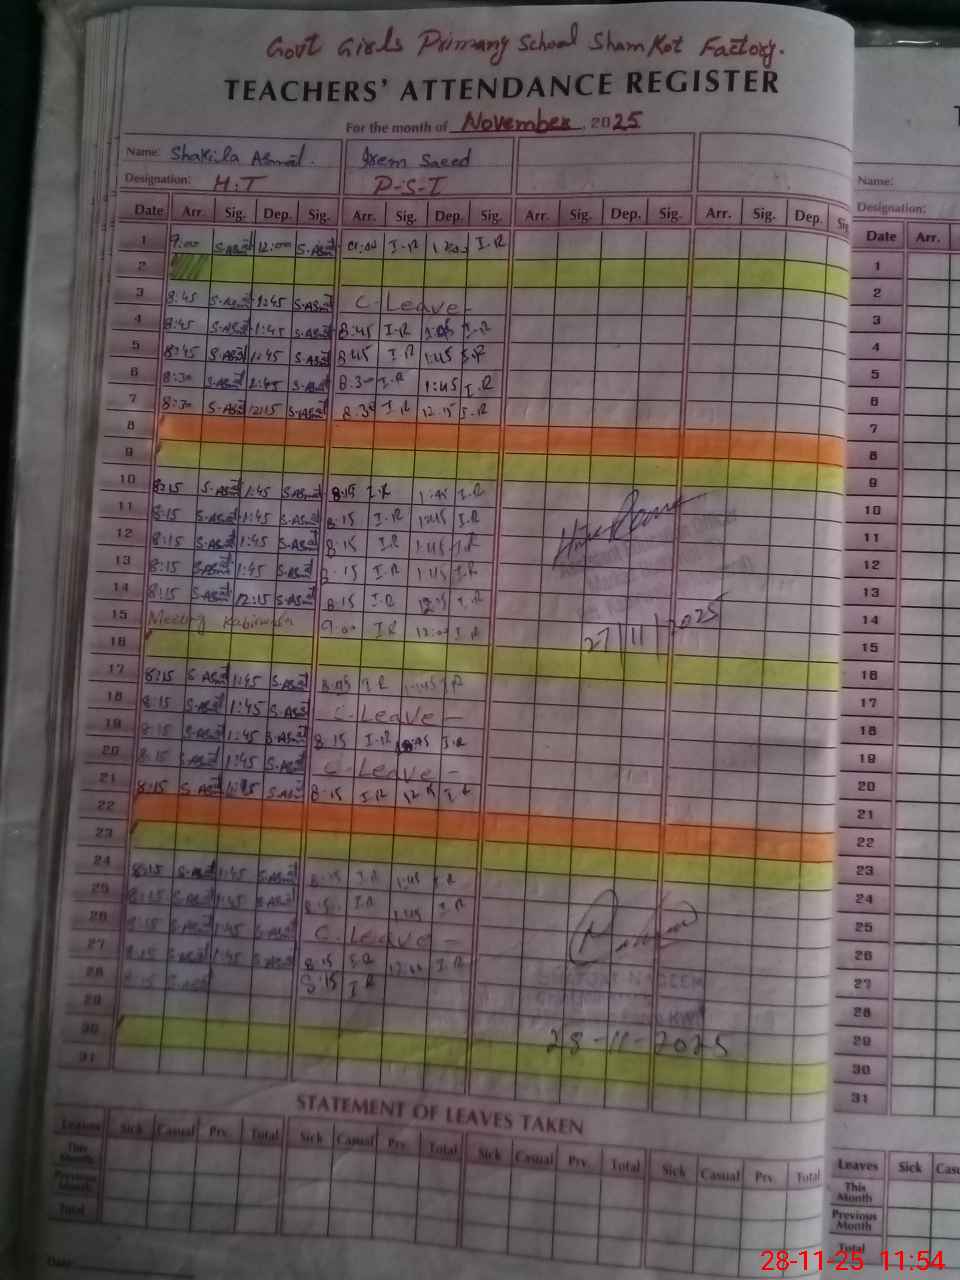 Govt Girls Primary School Sham Kot Factory.
TEACHERS' ATTENDANCE REGISTER
For the month of November, 2025
Name: Shakila Asmat. Irem Saeed
Designation: H.T P-S-T
Date Arr. Sig. Dep. Sig. Arr. Sig. Dep. Sig. Arr. Sig. Dep. Sig. Arr. Sig. Dep. Sig.
1 9:00 S.Asmat 12:00 S.Asmat I.R I.R
2
3 8:45 S.Asmat 1:45 S.Asmat C-Leave-
4 8:45 S.Asmat 1:45 S.Asmat 8:45 I.R I.R
5 8:45 S.Asmat 1:45 S.Asmat 8:45 I.R 1:45 I.R
6 8:30 S.Asmat 1:45 S.Asmat 8:30 I.R 1:45 I.R
7 8:30 S.Asmat 12:15 S.Asmat 8:30 I.R 12:15 I.R
8
9
10 8:15 S.Asmat 1:45 S.Asmat 8:15 I.R 1:45 I.R
11 8:15 S.Asmat 1:45 S.Asmat 8:15 I.R I.R
12 8:15 S.Asmat 1:45 S.Asmat 8:15 I.R 1:45 I.R
13 8:15 S.Asmat 1:45 S.Asmat 8:15 I.R 1:45 I.R
14 8:15 S.Asmat 12:15 S.Asmat 8:15 I.R I.R
15 Meeting 9:00 I.R 12:00 I.R
27/11/2025
16
17 8:15 S.Asmat 1:45 S.Asmat I.R 1:45 I.R
18 8:15 S.Asmat 1:45 S.Asmat C-Leave-
19 8:15 S.Asmat 1:45 S.Asmat 8:15 I.R I.R
20 8:15 S.Asmat 1:45 S.Asmat C-Leave-
21 8:15 S.Asmat S.Asmat 8:15 I.R I.R
22
23
24 8:15 S.Asmat 1:45 S.Asmat 8:15 I.R 1:45 I.R
25 8:15 S.Asmat 1:45 S.Asmat I.R 1:45 I.R
26 8:15 S.Asmat 1:45 S.Asmat C-Leave-
27 8:15 S.Asmat 1:45 S.Asmat 8:15 I.R 12:00 I.R
28 8:15 8:15 I.R
29
30
28-11-2025
31
STATEMENT OF LEAVES TAKEN
Leaves Sick Casual Prv. Total Sick Casual Prv. Total Sick Casual Prv. Total Sick Casual Prv. Total
This Month
Previous Month
Total
Date:
Name:
Designation:
Date Arr.
1
2
3
4
5
6
7
8
9
10
11
12
13
14
15
16
17
18
19
20
21
22
23
24
25
26
27
28
29
30
31
Leaves Sick
This Month
Previous Month
Total
28-11-25 11:54